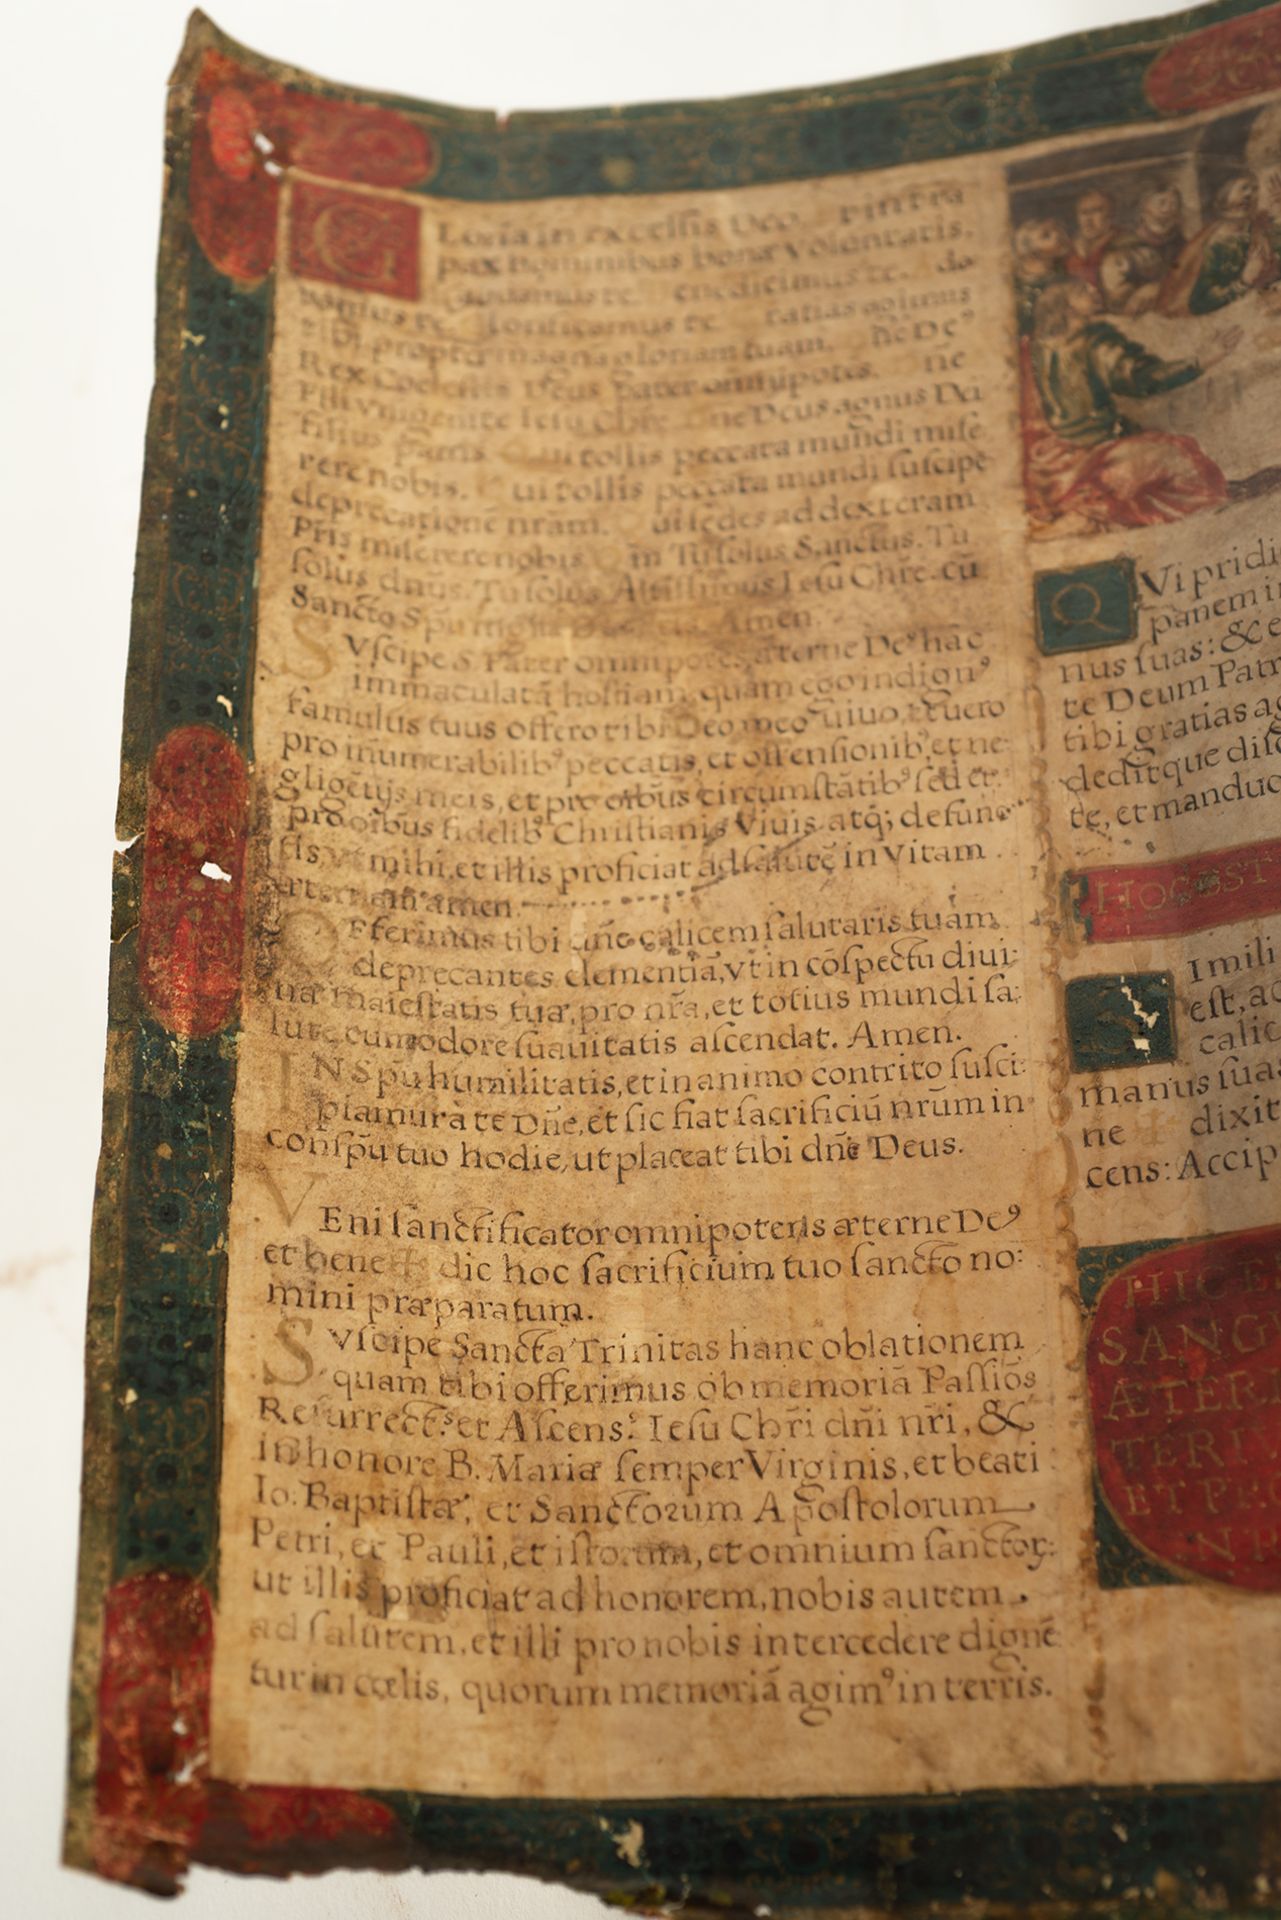 G Loria in excelsis Deo. in tra
pax hominibus bonæ voluntatis.
audamus te. enedicimus te. do
ramus te. lorificamus te. ratias agimus
tibi propter magnā gloriam tuam. ñe De⁹
Rex Coelestis Deus pater omnipotēs. ñe
Fili vnigenite Iesu Chre. ne Deus agnus Dei
filius patris. ui tollis peccata mundi mise
rere nobis. ui tollis peccata mundi suscipe
deprecationē nrām. ui sedes ad dexteram
Pris miserere nobis m Tu solus Sanctus. Tu
solus dnūs. Tu solus Altissimus Iesu Chre. cū
Sancto Spū Amen.
SVscipe S. Pater omnipotēs, æterne De⁹ hāc
immaculatā hostiam, quam ego indign⁹
famulus tuus offero tibi Deo meo uiuo, et uero
pro inumerabilib⁹ peccatis, et offensionib⁹, et ne:
gligētijs meis, et pro oībus circumstātib⁹ sed et
pro oībus fidelib⁹ Christianis Viuis atq; defunc
tis, vt mihi, et illis proficiat ad salutē in vitam
æternam amen.
OFferimus tibi dñe calicem salutaris tuām
deprecantes clementiā, vt in cōspectu diui:
næ maiestatis tuæ, pro nrā, et totius mundi sa:
lute, cum odore suauitatis ascendat. Amen.
IN Spū humilitatis, et in animo contrito susci:
piamur à te Dñe, et sic fiat sacrificiū nrūm in
conspū tuo hodie, ut placeat tibi dñē Deus.
VEni sanctificator omnipotens æterne De⁹
et bene ✠ dic hoc sacrificium tuo sancto no:
mini præparatum.
SVscipe Sancta Trinitas hanc oblationem
quam tibi offerimus ob memoriā Passiōs
Resurrect.ˢ et Ascens.ˢ Iesu Chr̄i dn̄i nr̄i, &
in honore B. Mariæ semper Virginis, et beati
Io: Baptistæ, et Sanctorum Apostolorum
Petri, et Pauli, et istorum, et omnium sanctor:
ut illis proficiat ad honorem, nobis autem
ad salutem, et illi pro nobis intercedere dignē
tur in cœlis, quorum memoriā agim⁹ in terris.
QVi pridi
panem i
nus suas: & e
te Deum Patr
tibi gratias a
deditque disc
te, et manduc
HOC EST
SImili
est, ac
calic
manus suas
ne ✠ dixit
cens: Accip
HIC E
SANG
ÆTER
TERI
ET PR